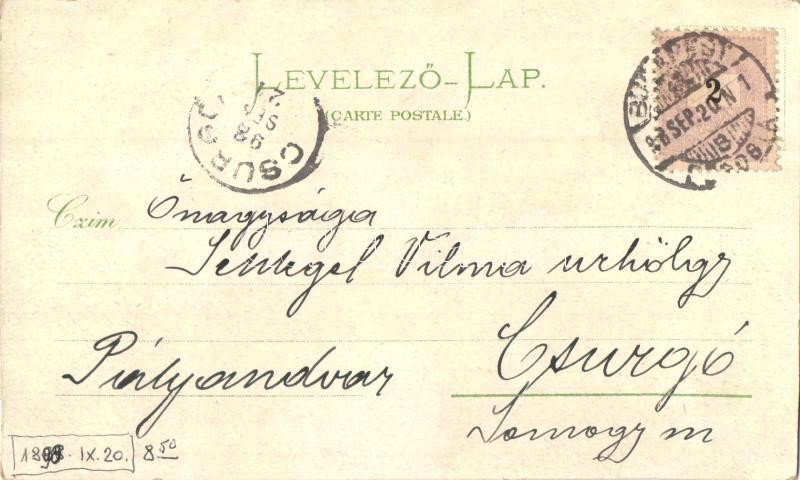 LEVELEZŐ-LAP.
(CARTE POSTALE.)
BUDAPEST
98 SEP. 20. N 1
2
CSURGÓ
98
SEP
21
Czim Őnagysága
Schlegel Vilma urhölgy
Pályaudvar Csurgó
Somogy m
1898. IX. 20. 8 50